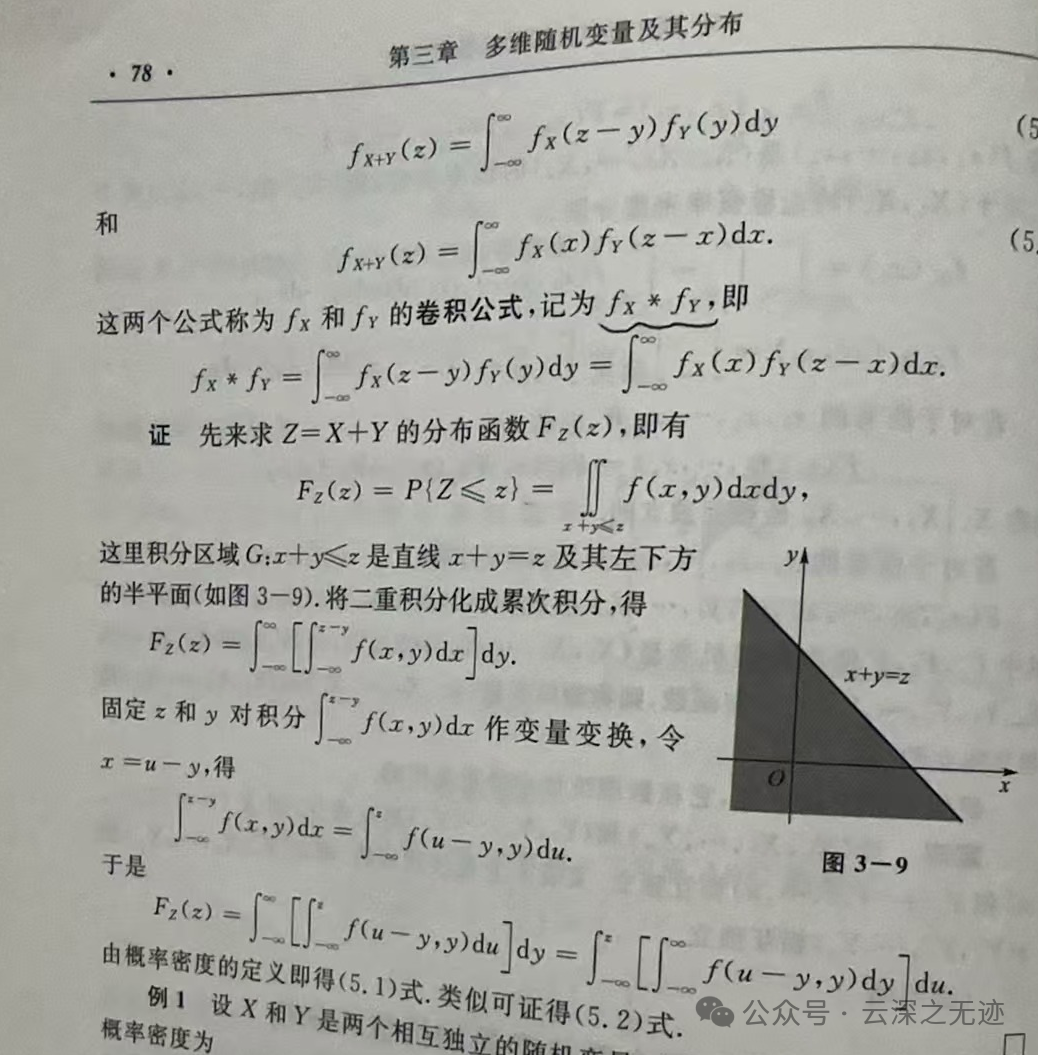 · 78 ·
第三章 多维随机变量及其分布
f_{X+Y}(z) = ∫_{-∞}^{∞} f_X(z-y)f_Y(y)dy (5
和
f_{X+Y}(z) = ∫_{-∞}^{∞} f_X(x)f_Y(z-x)dx. (5.
这两个公式称为 f_X 和 f_Y 的卷积公式,记为 f_X * f_Y,即
f_X * f_Y = ∫_{-∞}^{∞} f_X(z-y)f_Y(y)dy = ∫_{-∞}^{∞} f_X(x)f_Y(z-x)dx.
证 先来求 Z=X+Y 的分布函数 F_Z(z),即有
F_Z(z) = P{Z⩽z} = ∬_{x+y⩽z} f(x,y)dxdy,
这里积分区域 G:x+y⩽z 是直线 x+y=z 及其左下方
的半平面(如图 3-9).将二重积分化成累次积分,得
F_Z(z) = ∫_{-∞}^{∞}[∫_{-∞}^{z-y} f(x,y)dx]dy.
固定 z 和 y 对积分 ∫_{-∞}^{z-y} f(x,y)dx 作变量变换,令
x=u-y,得
∫_{-∞}^{z-y} f(x,y)dx = ∫_{-∞}^{z} f(u-y,y)du.
于是
F_Z(z) = ∫_{-∞}^{∞}[∫_{-∞}^{z} f(u-y,y)du]dy = ∫_{-∞}^{z}[∫_{-∞}^{∞} f(u-y,y)dy]du.
由概率密度的定义即得(5.1)式.类似可证得(5.2)式.
例 1 设 X 和 Y 是两个相互独立的随机变
概率密度为
y
x+y=z
O
x
图 3-9
公众号·云深之无迹